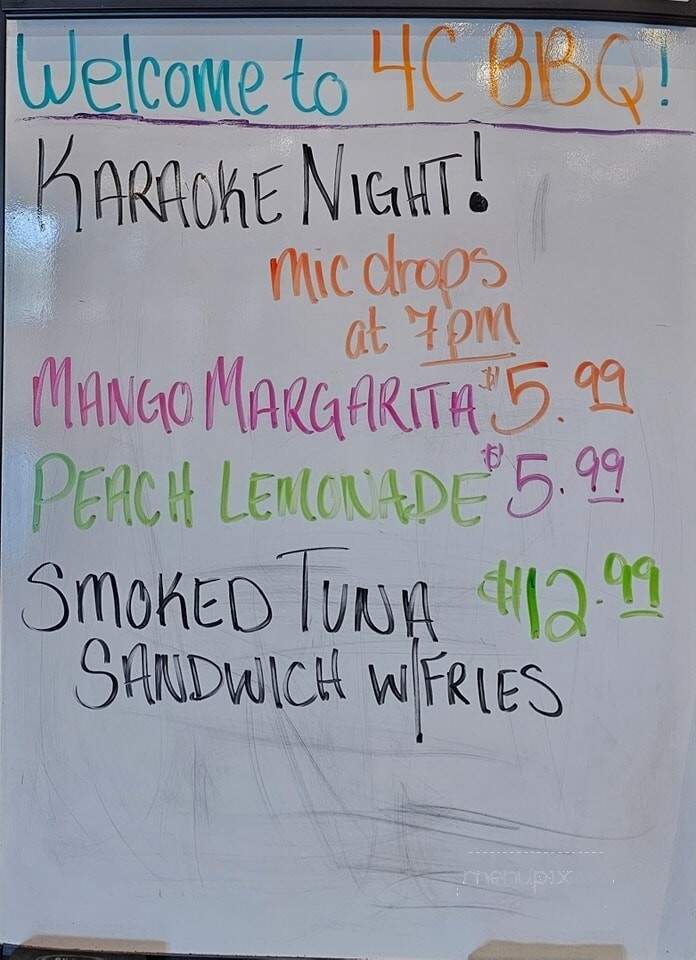 Welcome to 4C BBQ!
KARAOKE NIGHT!
mic drops
at 7pm
MANGO MARGARITA $5.99
PEACH LEMONADE $5.99
SMOKED TUNA $12.99
SANDWICH W/FRIES
menupix